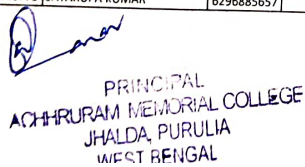 KUMAR
6296885657
PRINCIPAL
ACHHRURAM MEMORIAL COLLEGE
JHALDA, PURULIA
WEST BENGAL